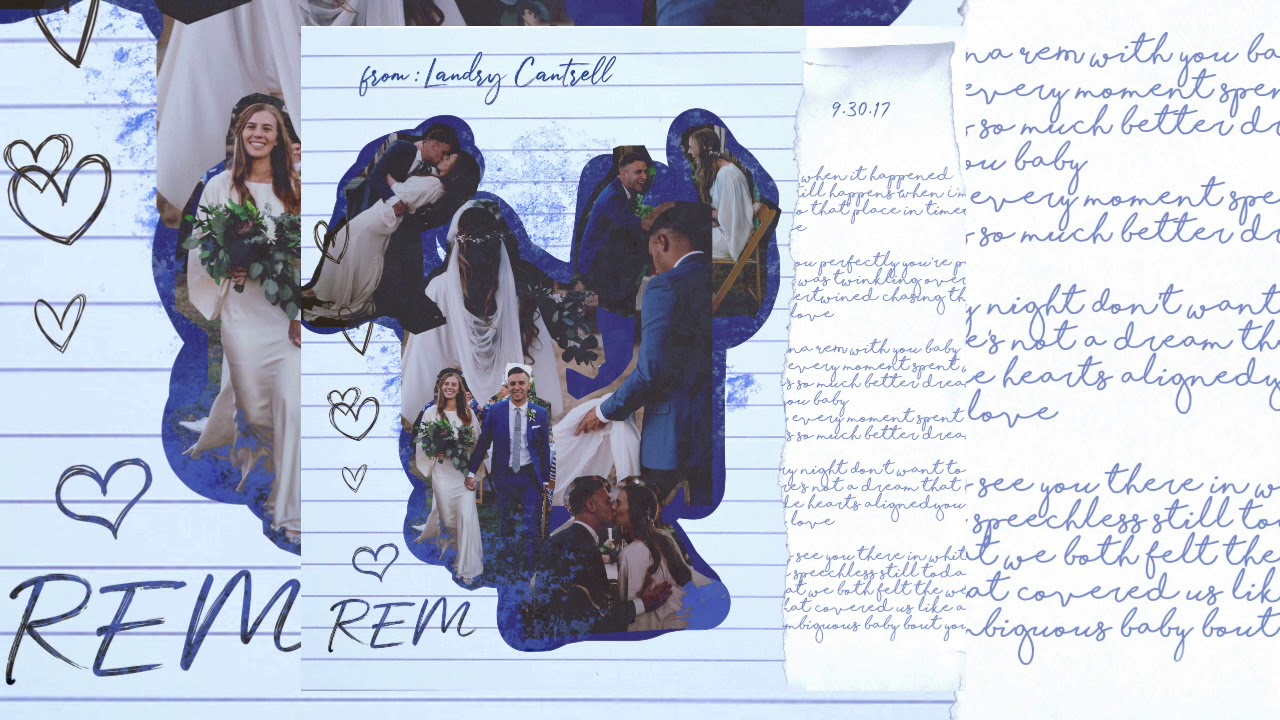 from: Landry Cantrell
REM
REM
9.30.17
when it happened
till happens when i'm
o that place in time
e
ou perfectly you're p
was twinkling over
ertwined chasing th
love
na rem with you baby
every moment spent
s so much better drea
ou baby
every moment spent
s so much better drea
ry night don't want to
re's not a dream that
le hearts alignedyou
love
see you there in whit
speechless still toda
at we both felt the we
hat covered us like a
mbiguous baby bout you
na rem with you ba
every moment spen
r so much better dr
ou baby
every moment spe
r so much better dr
y night don't want
e's not a dream tha
e hearts alignedy
love
see you there in w
speechless still to
t we both felt the
at covered us lik
mbiguous baby bout